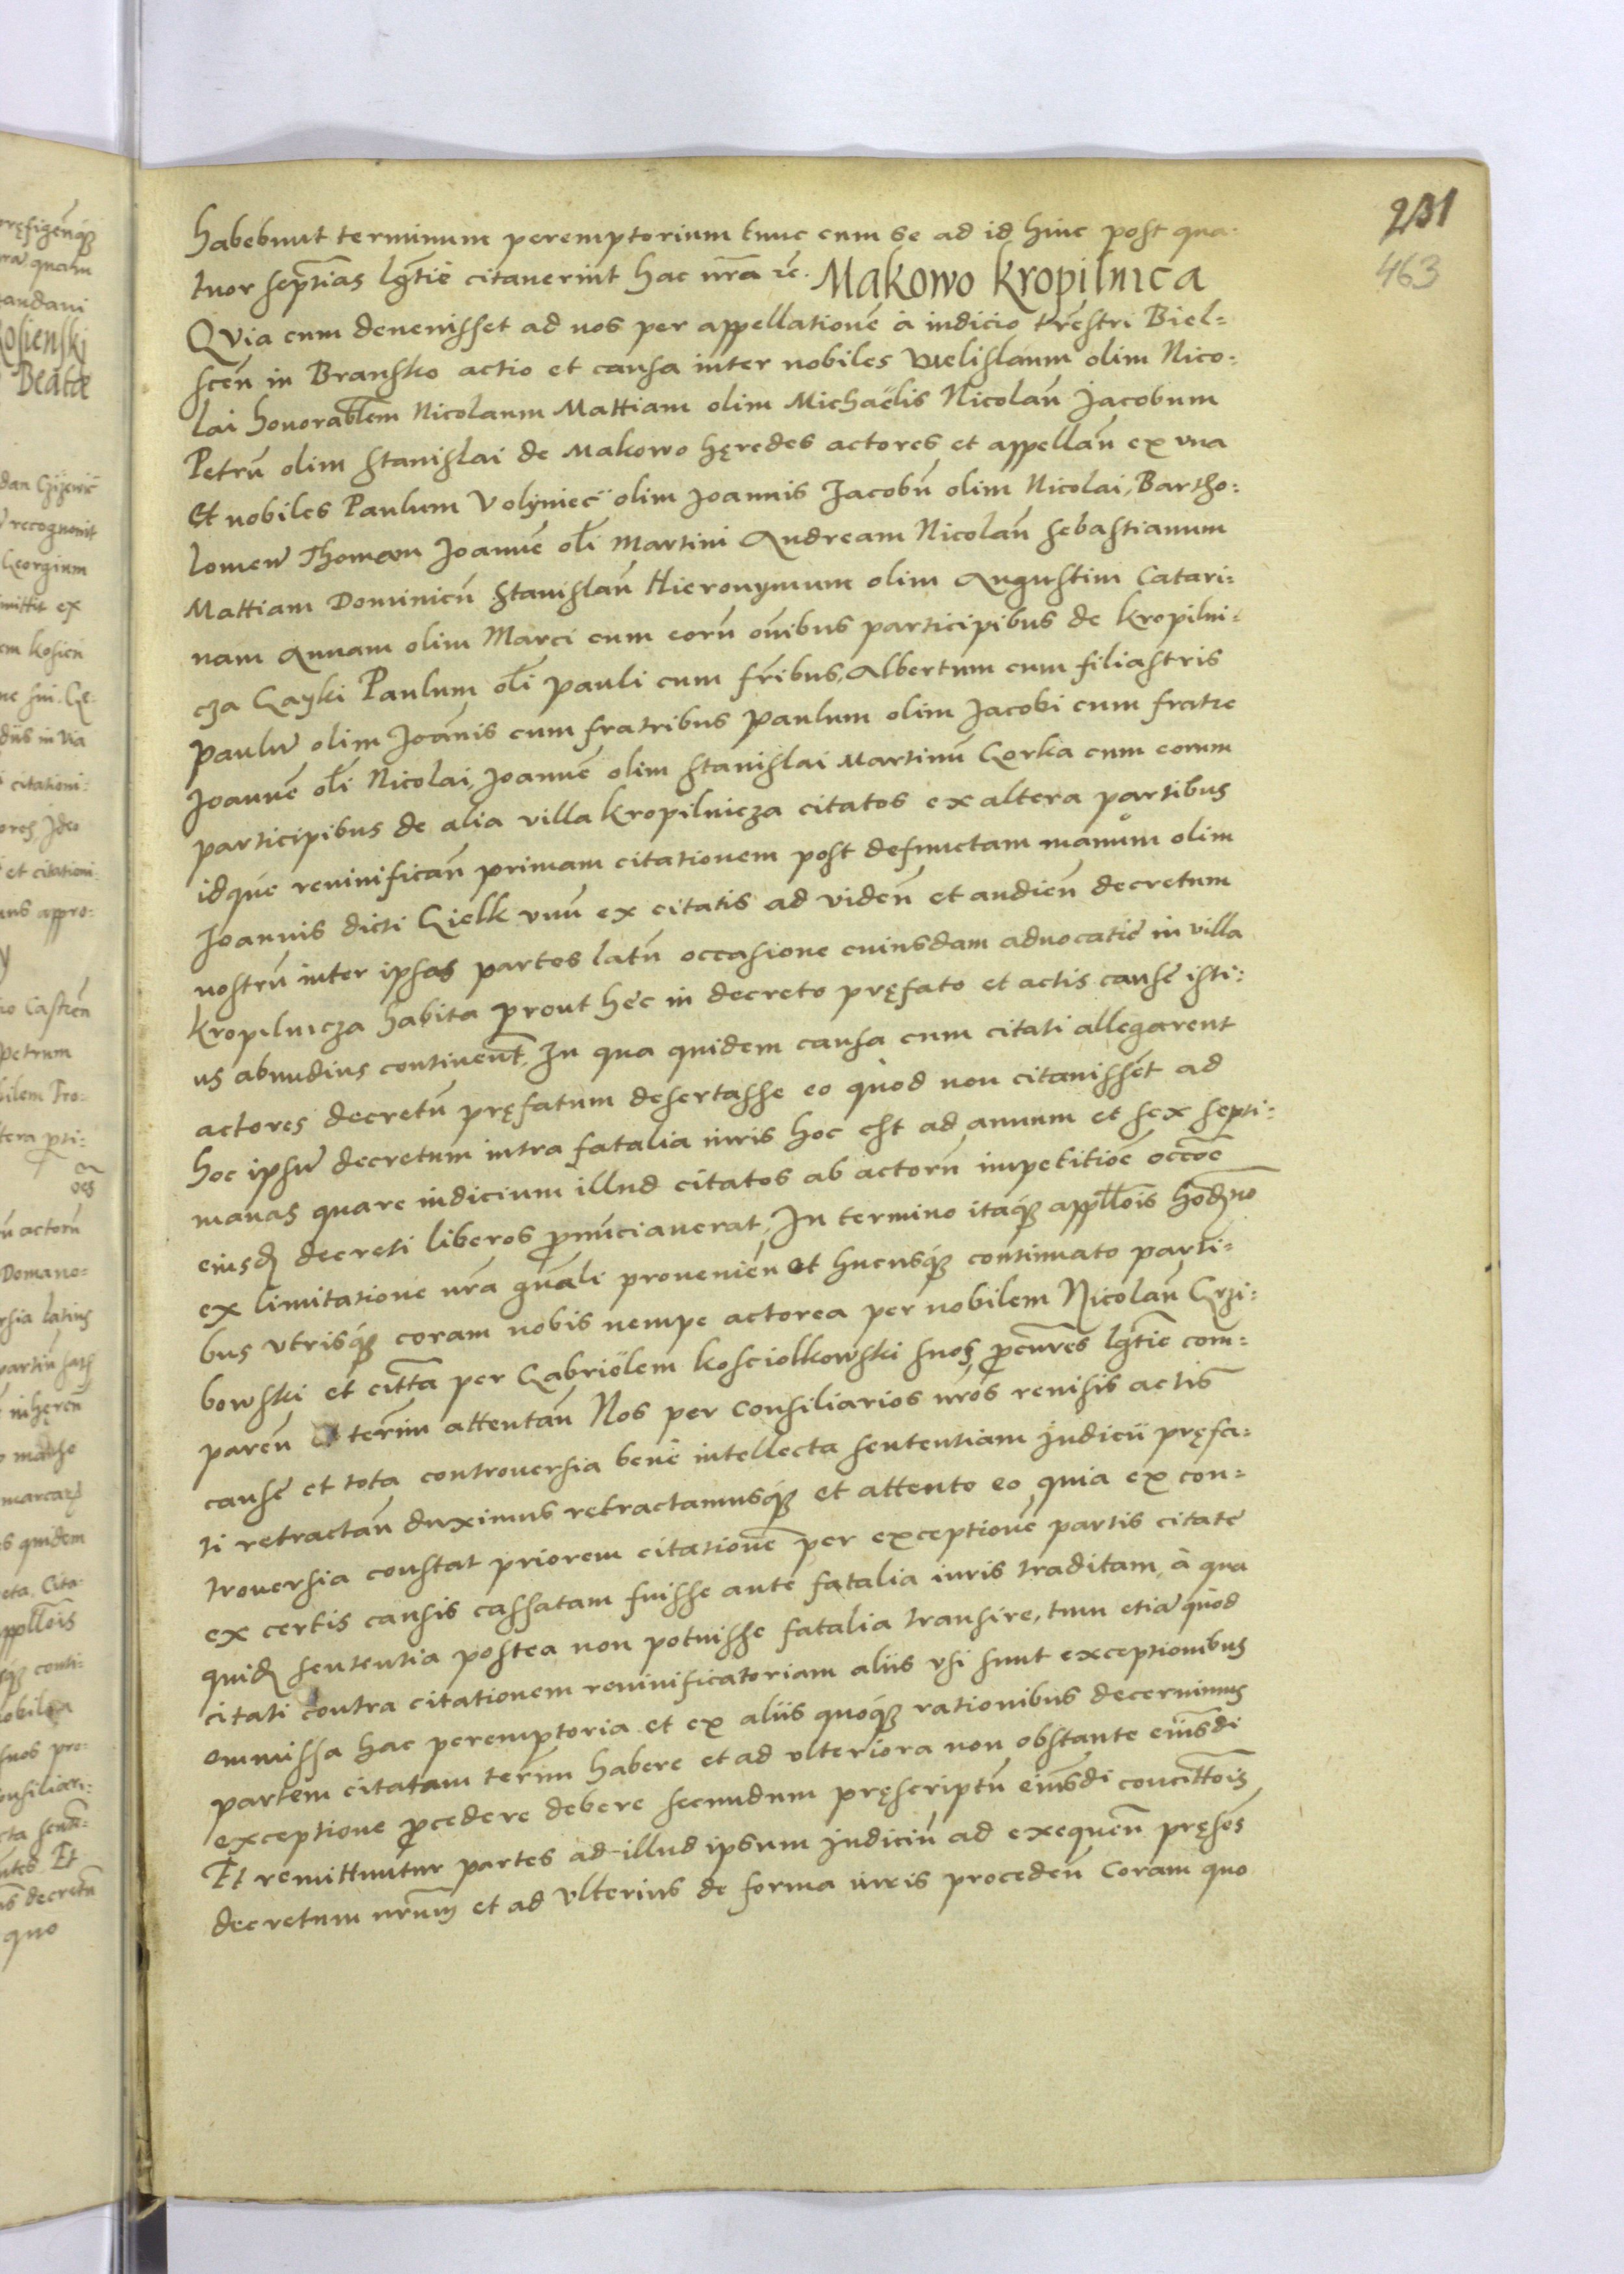 231
463
habebunt terminum peremptorium tunc cum se ad id hinc post qua-
tuor septīas lgt̄ie citauerint hac nr̄a rē. Makowo Kropilnica
QVia cum deuenisset ad nos per appellationē à iudicio tr̄estri Biel=
scēn in Bransko actio et causa inter nobiles Welislaum olim Nico:
lai honorablem Nicolaum Mattiam olim Michaëlis Nicolaū Jacobum
Petrū olim Stanislai de Makowo hęredes actores et appellañ ex vna
Et nobiles Paulum Volyniec olim Joannis Jacobū olim Nicolai, Bartho:
lomeū Thomam Joannē olī Martini Andream Nicolaū Sebastianum
Mattiam Dominicū Stanislaū Hieronymum olim Augustini Catari:
nam Annam olim Marci cum eorū om̄ibus participibus de Kropilni-
cza Gayki Paulum olī Pauli cum fr̄ibus, Albertum cum filiastris
Paulū olim Joānis cum fratribus Paulum olim Jacobi cum fratre
Joannē olī Nicolai, Joannē olim Stanislai Martinū Gorka cum eorum
participibus de alia villa Kropilnicza citatos ex altera partibus
idque reuiuificañ primam citationem post defunctam manum olim
Joannis dicti Gielk vnū ex citatis ad videñ et audieñ decretum
nostrū inter ipsas partes latū occasione cuiusdam aduocatie in villa
Kropilnicza habita prout hec in decreto pręfato et actis cause isti:
us abundius continent̄. In qua quidem causa cum citati allegarent
actores decretū pręfatum desertasse eo quòd non citauissēt ad
hoc ipsū decretum intra fatalia iuris hoc est ad annum et sex septi:
manas quare iudicium illud citatos ab actorū impetitiōe occōe
eiusd̄ decreti liberos p̄nunciauerat, In termino itaq́ appll̄ois hod̄no
ex limitatione nr̄a gn̄ali prouenieñ et hucusq́ continuato parti-
bus vtrisq́ coram nobis nempe actorea per nobilem Nicolaū Grzi:
bowski et citt̄a per Gabriëlem Kosciolkowski suos p̄cur̄es lgt̄ie com-
pareñ terīm attentañ Nos per consiliarios nr̄os reuisis actis
cause et tota controuersia bene intellecta sententiam Judicii pręfa-
ti retractañ duximus retractamusq́ et attento eo quia ex con-
trouersia constat priorem citationē per exceptionē partis citate
ex certis causis cassatam fuisse ante fatalia iuris traditam, à qua
quid̄ sententia postea non potuisse fatalia transire, tum etiā quòd
citati contra citationem reuiuificatoriam aliis vsi sunt exceptionibus
ommissa hac peremptoria et ex aliis quoq́ rationibus decernimus
partem citatam terīm habere et ad vlteriora non obstante eiusdi
exceptione p̄cedere debere secundum pręscriptū eiusdi concitt̄ois
Et remittuntur partes ad illud ipsum Judiciū ad exequeñ pręsēs
decretum nr̄um et ad vlterius de forma iuris procedeñ Coram quo